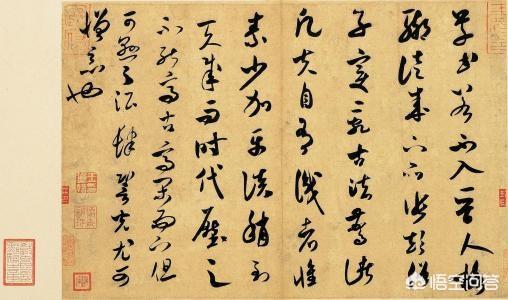 草書若不入晉人格
輒徒成下品張顛俗
子變亂古法驚諸
凡夫自有識者懷
素少加平淡稍到
天成而時代壓之
不能高古高閑而下但
可懸之酒肆光尤可
憎惡也
悟空问答